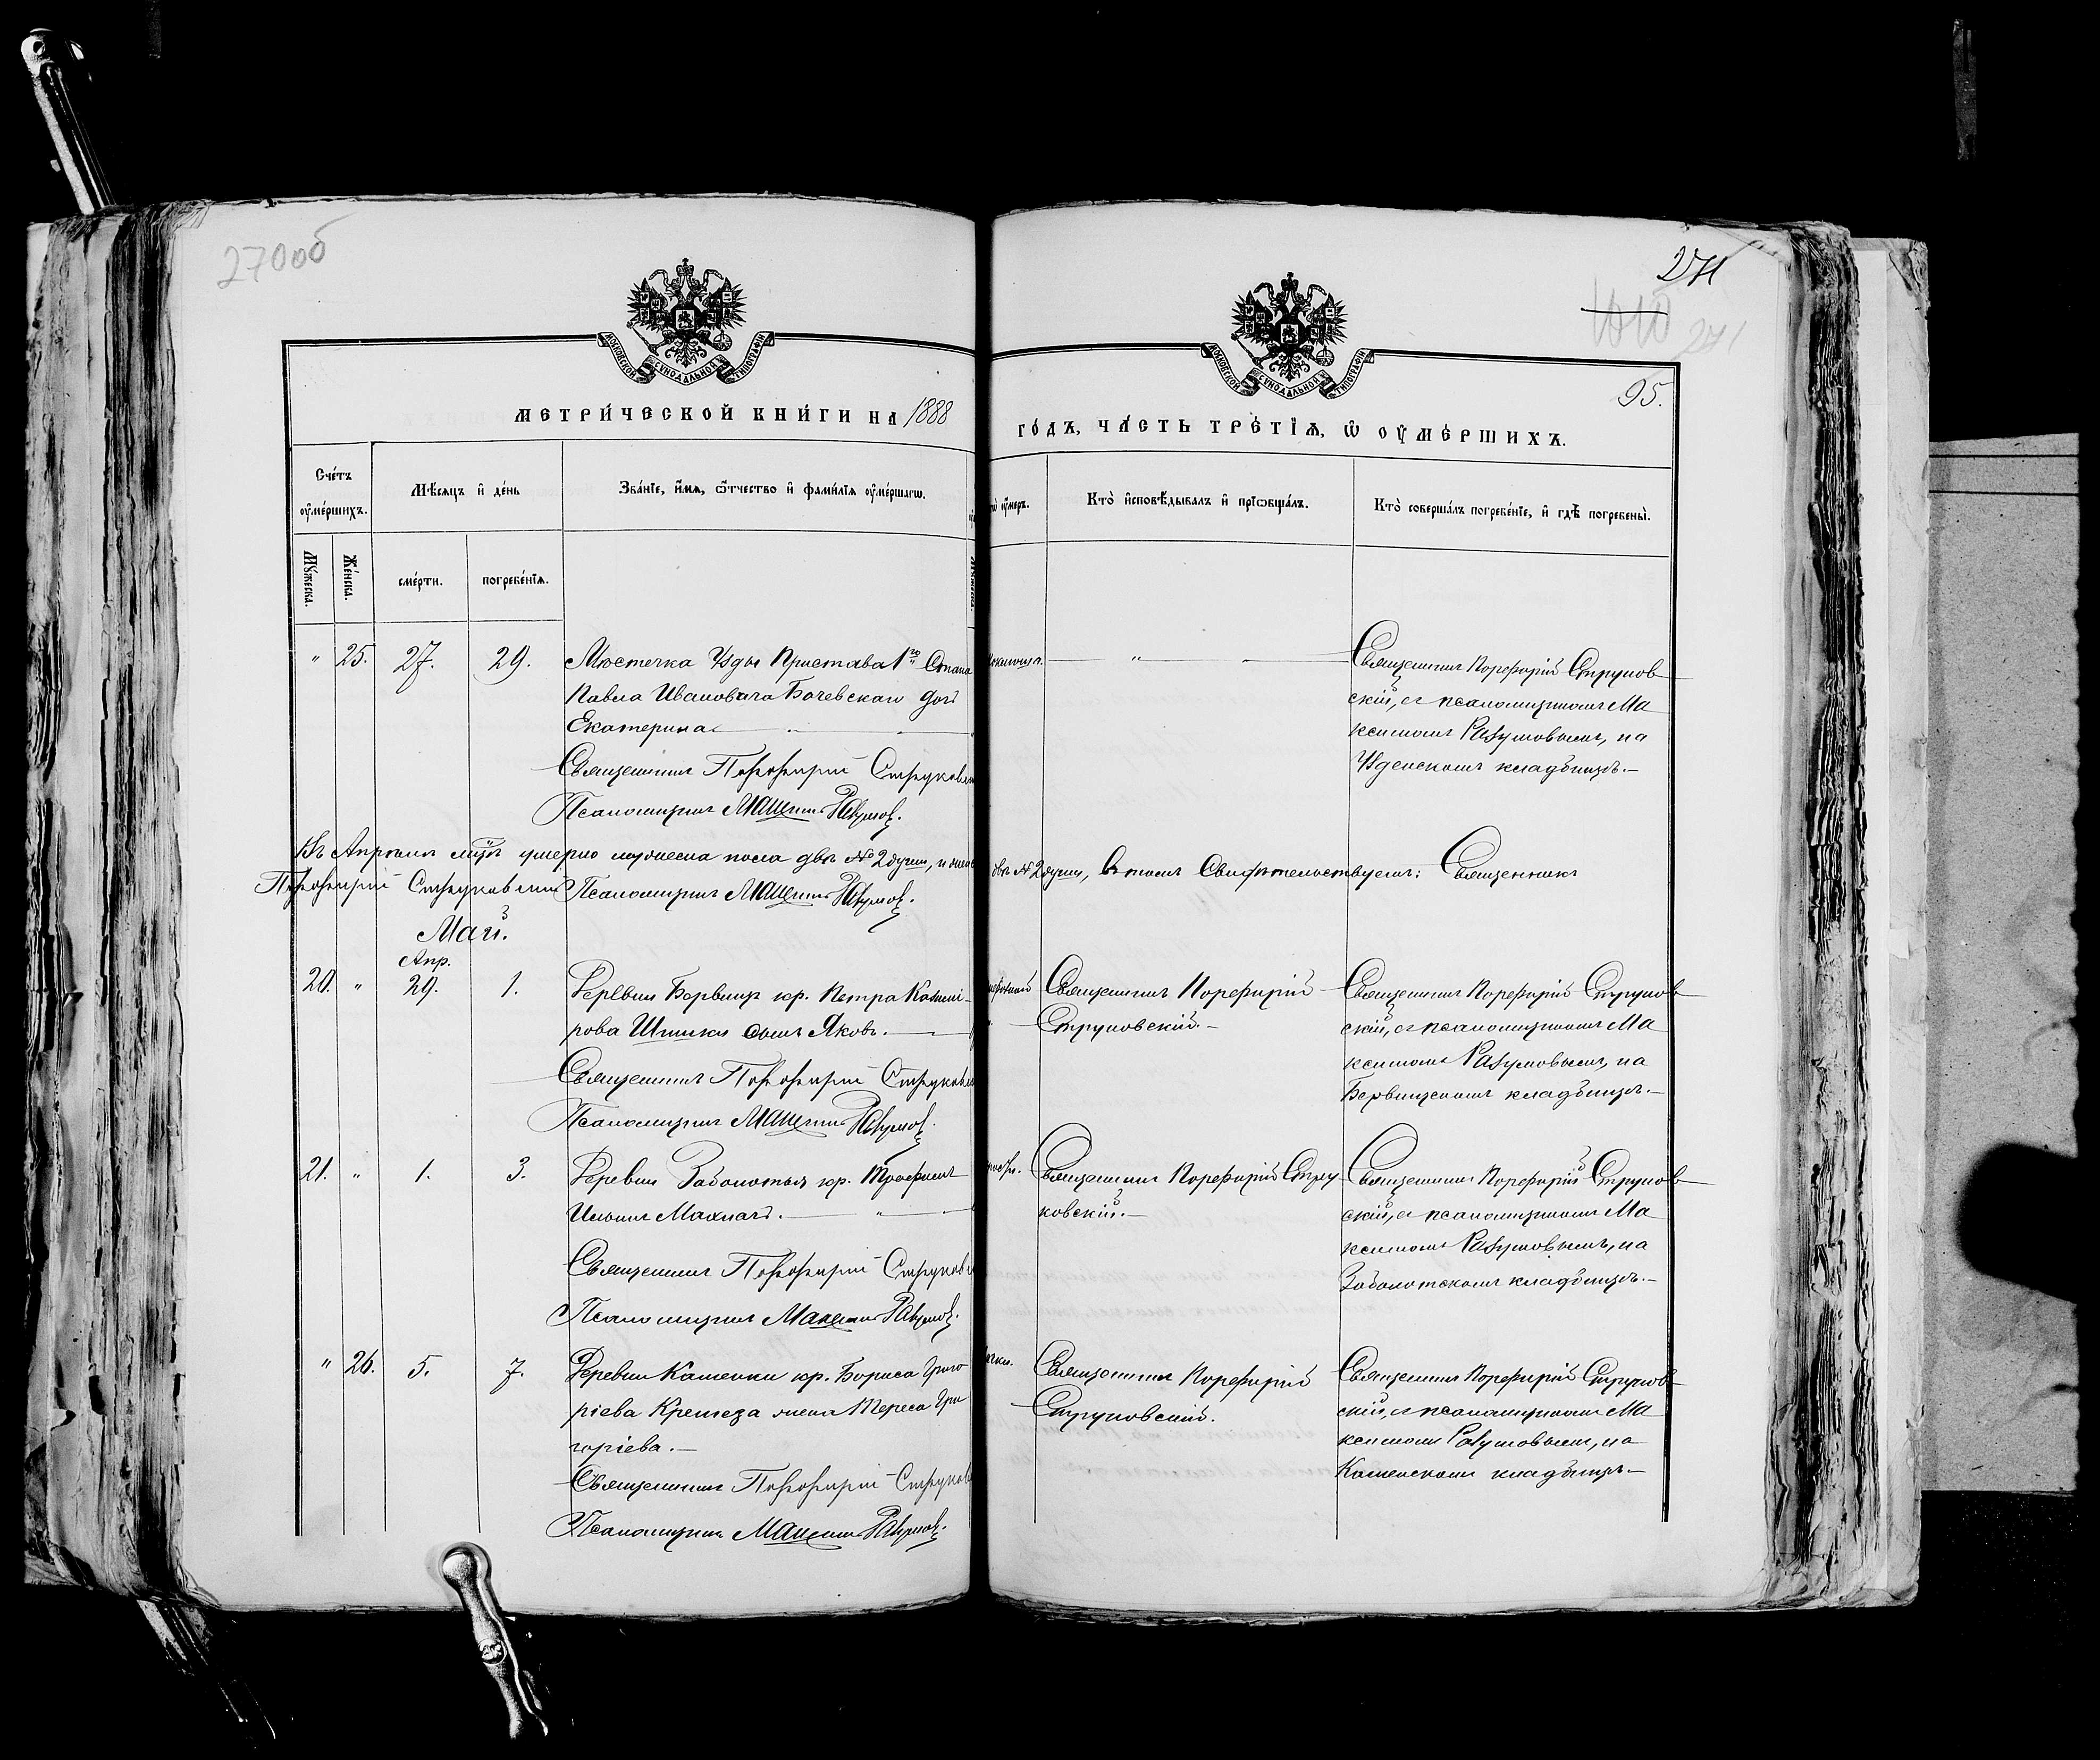 270об
271
1010
271
95.
МОСКОВСКОЙ СѴНОДАЛЬНОЙ ТИПОГРАФІИ
МОСКОВСКОЙ СѴНОДАЛЬНОЙ ТИПОГРАФІИ
МЕТРИ́ЧЕСКОЙ КНИ́ГИ НА 1888
ГО́ДЪ, ЧА́СТЬ ТРЕ́ТІѦ, Ѡ҆ ОУ҆МЕ́РШИХЪ.
Сче́тъ оу҆ме́ршихъ.
Мꙋ́жеска.
Же́нска.
Мѣ́сяцъ и҆ де́нь
сме́рти.
погребе́нїѧ.
Зва́нїе, и҆́мѧ, ѻ҆́тчество и҆ фами́лїѧ оу҆ме́ршагѡ.
оу҆́меръ.
Кто̀ и҆сповѣ́дывалъ и҆ прїѡбща́лъ.
Кто̀ соверша́лъ погребе́нїе, и҆ гдѣ̀ погребены̀.
" 25. 27. 29.
Мѣстечка Узды Пристава 1го Стана
Павла Ивановича Бочевскаго дочь
Екатерина
Священникъ Порфирій Струковскій
Псаломщикъ Максимъ Разумов.
Священникъ Порфирій Струков
скій, съ псаломщикомъ Ма
ксимомъ Разумовымъ, на
Узденскомъ кладбищѣ.—
Въ Апрѣлѣ мцѣ умерло мужеска пола двѣ № 2 души, и женска
двѣ № 2 души, въ томъ Свидѣтельствуемъ: Священникъ
Порфирій Струковскій Псаломщикъ Максимъ Разумов.
Май.
Апр.
20. " 29. 1.
Деревни Борвищ кр. Петра Казимі-
рова Шишки сынъ Яковъ.—
Священникъ Порфирій Струковскій
Псаломщикъ Максимъ Разумов.
Священникъ Порфирій
Струковскій.—
Священникъ Порфирій Струков
скій, съ псаломщикомъ Ма
ксимомъ Разумовымъ, на
Борвищскомъ кладбищѣ.—
21. " 1. 3.
Деревни Заболотья кр. Трофимъ
Ильинъ Махначъ.—
Священникъ Порфирій Струковскій
Псаломщикъ Максимъ Разумов.
Священникъ Порфирій Стру
ковскій.—
Священникъ Порфирій Струков
скій, съ псаломщикомъ Ма
ксимомъ Разумовымъ, на
Заболотскомъ кладбищѣ.—
" 26. 5. 7.
Деревни Каменки кр. Бориса Григо
ріева жена Тереса Гри
горіева.—
Священникъ Порфирій Струков
Псаломщикъ Максимъ Разумов.
Священникъ Порфирій
Струковскій.
Священникъ Порфирій Струков
скій, съ псаломщикомъ Ма
ксимомъ Разумовымъ, на
Каменскомъ кладбищѣ.—